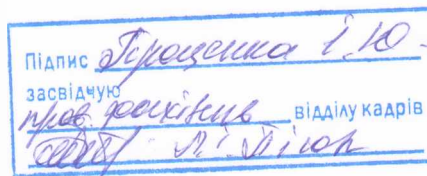 Підпис Проценка І.Ю.
засвідчую
пров. фахівець відділу кадрів